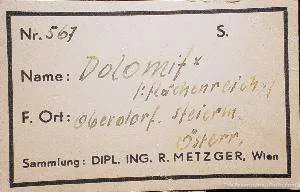 Nr. 567 S.
Name: Dolomit x
(flächenreich)
F. Ort: Oberdorf. Steierm.
Österr.
Sammlung: DIPL. ING. R. METZGER, Wien